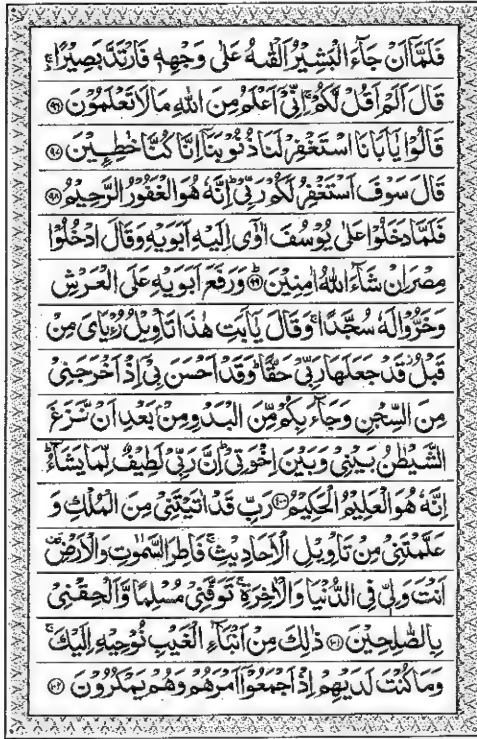 فَلَمَّاۤ اَنْ جَآءَ الْبَشِيْرُ اَلْقٰىهُ عَلٰى وَجْهِهٖ فَارْتَدَّ بَصِيْرًا ۚ
قَالَ اَلَمْ اَقُلْ لَّكُمْ ۚ اِنِّىْۤ اَعْلَمُ مِنَ اللّٰهِ مَا لَا تَعْلَمُوْنَ ۝۹۶
قَالُوْا يٰۤاَبَانَا اسْتَغْفِرْ لَنَا ذُنُوْبَنَاۤ اِنَّا كُنَّا خٰطِـِٕيْنَ ۝۹۷
قَالَ سَوْفَ اَسْتَغْفِرُ لَكُمْ رَبِّىْ ؕ اِنَّهٗ هُوَ الْغَفُوْرُ الرَّحِيْمُ ۝۹۸
فَلَمَّا دَخَلُوْا عَلٰى يُوْسُفَ اٰوٰۤى اِلَيْهِ اَبَوَيْهِ وَقَالَ ادْخُلُوْا
مِصْرَ اِنْ شَآءَ اللّٰهُ اٰمِنِيْنَ ؕ۝۹۹ وَرَفَعَ اَبَوَيْهِ عَلَى الْعَرْشِ
وَخَرُّوْا لَهٗ سُجَّدًا ۚ وَقَالَ يٰۤاَبَتِ هٰذَا تَاْوِيْلُ رُءْيَاىَ مِنْ
قَبْلُ ؗ قَدْ جَعَلَهَا رَبِّىْ حَقًّا ؕ وَقَدْ اَحْسَنَ بِىْۤ اِذْ اَخْرَجَنِىْ
مِنَ السِّجْنِ وَجَآءَ بِكُمْ مِّنَ الْبَدْوِ مِنْۢ بَعْدِ اَنْ نَّزَغَ
الشَّيْطٰنُ بَيْنِىْ وَبَيْنَ اِخْوَتِىْ ؕ اِنَّ رَبِّىْ لَطِيْفٌ لِّمَا يَشَآءُ ؕ
اِنَّهٗ هُوَ الْعَلِيْمُ الْحَكِيْمُ ۝۱۰۰ رَبِّ قَدْ اٰتَيْتَنِىْ مِنَ الْمُلْكِ وَ
عَلَّمْتَنِىْ مِنْ تَاْوِيْلِ الْاَحَادِيْثِ ۚ فَاطِرَ السَّمٰوٰتِ وَالْاَرْضِ ۟
اَنْتَ وَلِىّٖ فِى الدُّنْيَا وَالْاٰخِرَةِ ۚ تَوَفَّنِىْ مُسْلِمًا وَّاَلْحِقْنِىْ
بِالصّٰلِحِيْنَ ۝۱۰۱ ذٰلِكَ مِنْ اَنْۢبَآءِ الْغَيْبِ نُوْحِيْهِ اِلَيْكَ ۚ
وَمَا كُنْتَ لَدَيْهِمْ اِذْ اَجْمَعُوْۤا اَمْرَهُمْ وَهُمْ يَمْكُرُوْنَ ۝۱۰۲